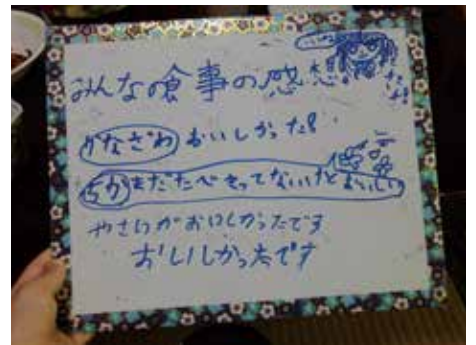 みんなの食事の感想!
かなざわ おいしかった!
ちか まだたべきってないけどおいしい
やさいがおいしかったです
おいしかったです